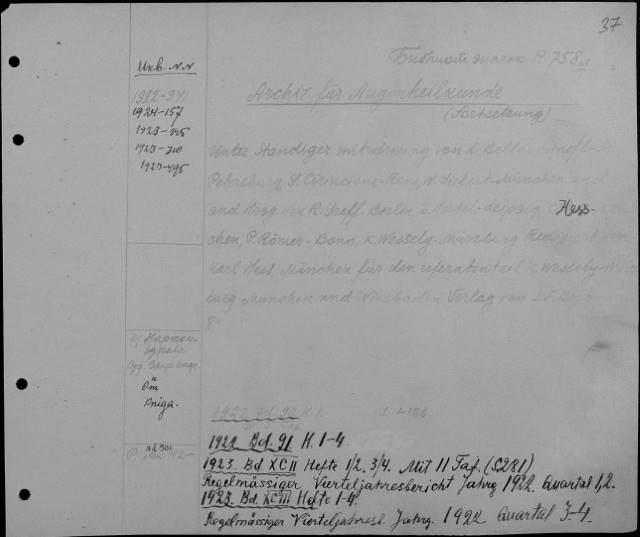 37
Библиот. знаток R 758g
Инв. NN
1922-341
1924-157
1923-145
1923-310
1923-495
Archiv für Augenheilkunde
(Fortsetzung)
Unter Ständiger mitwirkung von L. Bellarminoff-St.
Petersburg, S. Cirincione-Rom, W. Siebert-München und
and hrsg. von R. Greeff. Berlin, Leipzig Hess-
chen, P. Römer-Bonn, K. Wessely-Würzburg Redigiert von
Karl Hess München für den referatenteil K. Wessely-Würz
burg München und Wiesbaden Verlag von J. F.
8°
от Нарком-
здрава
От
Книга.
1922 Bd. 91 H. 1-4
1923. Bd. XCII Hefte 1/2. 3/4. Mit 11 Taf. (S281)
Regelmässiger Vierteljahresbericht Jahrg 1922. Quartal 1,2.
1923. Bd. XCIII Hefte 1-4.
Regelmässiger Vierteljahresb. Jahrg. 1922 Quartal 3-4.